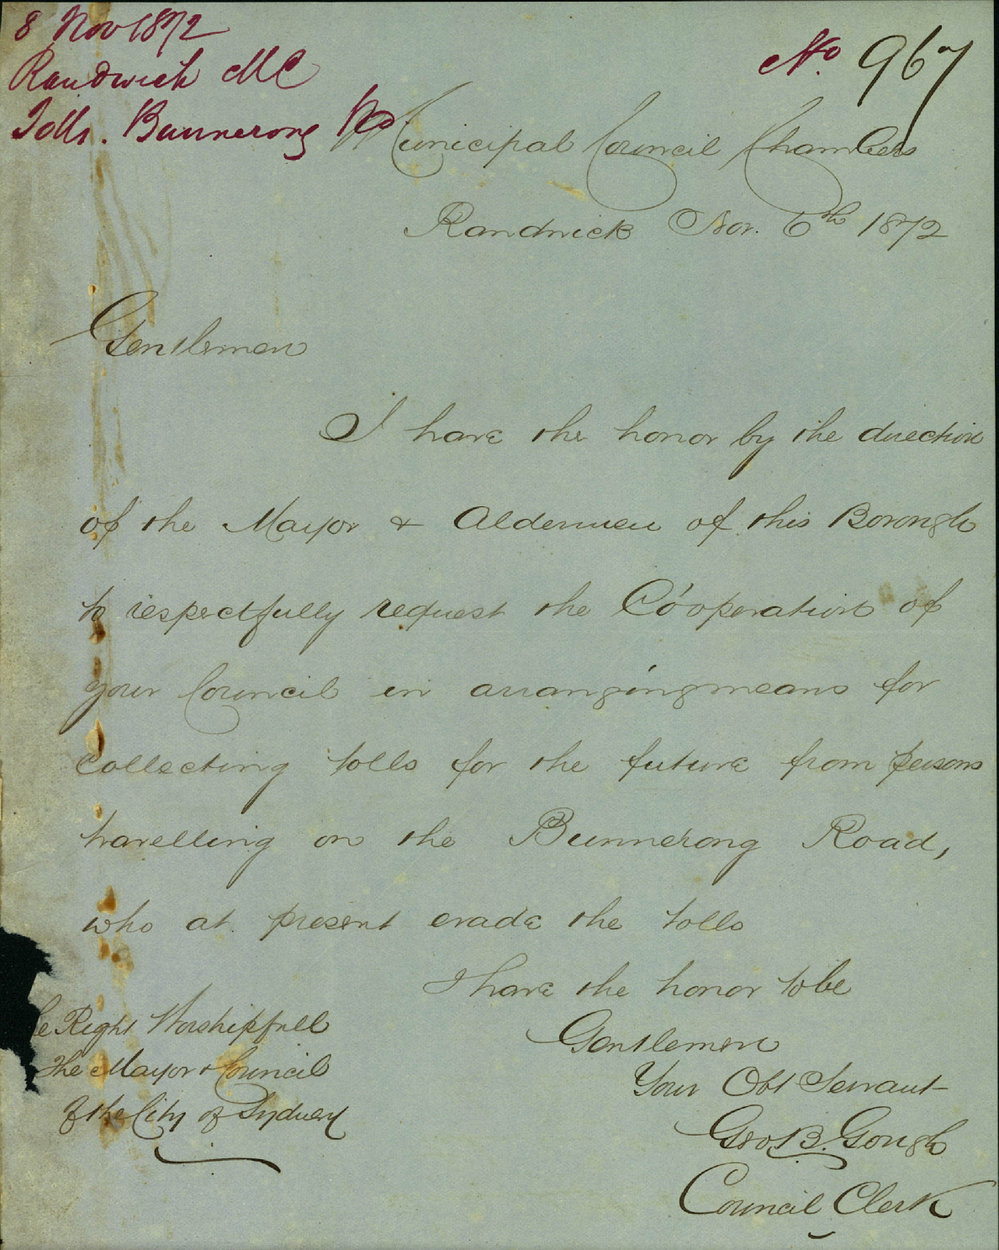 8 Nov 1872
Randwick MC
Tolls. Bunnerong Rd
No. 967
Municipal Council Chambers
Randwick Nov. 6th 1872
Gentlemen
I have the honor by the direction
of the Mayor & Aldermen of this Borough
to respectfully request the Co'operation of
your Council in arranging means for
collecting tolls for the future from persons
travelling on the Bunnerong Road,
who at present evade the tolls
I have the honor to be
Gentlemen
Your Obt Servant
Geo B. Gough
Council Clerk
he Right Worshipfull
The Mayor & Council
of the City of Sydney